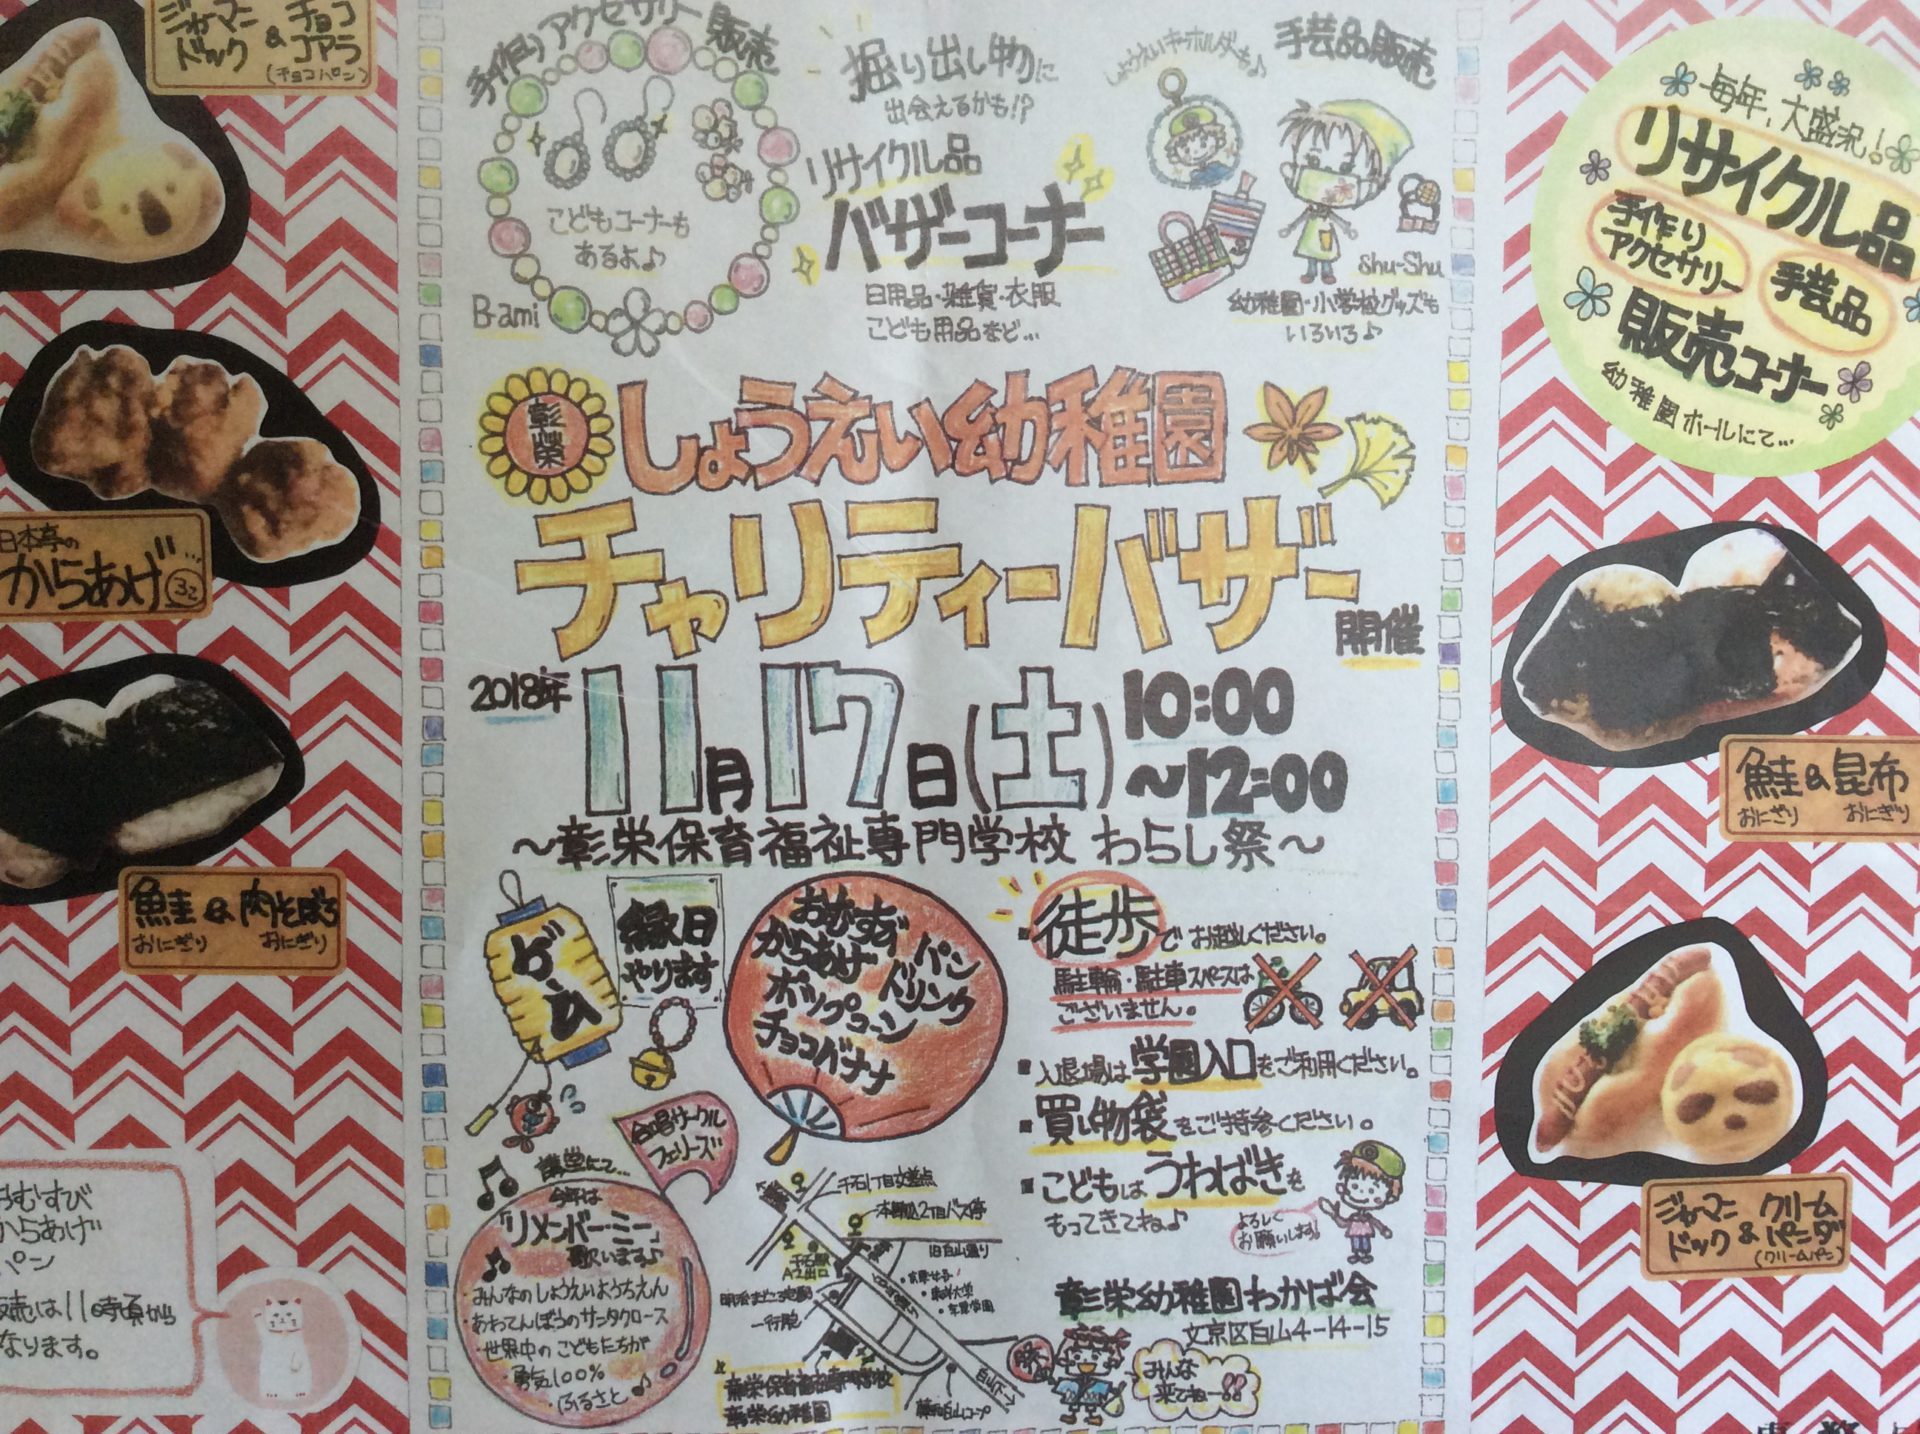 ジャーマン
ドック
&
チョコ
コアラ
(チョコパン)
日本亭の
からあげ
鮭 & 肉そぼろ
おにぎり おにぎり
おむすび
からあげ
パン
販売は11時頃から
なります。
手作りアクセサリー販売
こどもコーナーも
あるよ♪
B-ami
掘り出し物に
出会えるかも!?
リサイクル品
バザーコーナー
日用品・雑貨・衣服
こども用品など…
しょうえいキーホルダーも♪
手芸品販売
Shu-Shu
幼稚園・小学校グッズも
いろいろ♪
彰榮
しょうえい幼稚園
チャリティーバザー
開催
2018年
11月17日(土)
10:00
~12:00
~彰栄保育福祉専門学校 わらし祭~
ゲーム
縁日
やります
おむすび
からあげ
ポップコーン
チョコバナナ
パン
ドリンク
徒歩でお越しください。
駐輪・駐車スペースは
ございません。
入退場は学園入口をご利用ください。
買い物袋をご持参ください。
こどもはうわばきを
もってきてね♪
よろしく
お願いします!
合唱サークル
フェリーズ
講堂にて…
今年は
「リメンバー・ミー」
歌います♪
・みんなのしょうえいようちえん
・あわてんぼうのサンタクロース
・世界中のこどもたちが
・勇気100%
・ふるさと♪
千石1丁目交差点
本駒込2丁目バス停
旧白山通り
千石駅
A1出口
一行院
彰栄保育福祉専門学校
彰栄幼稚園
彰栄幼稚園わかば会
文京区白山4-14-15
祭
みんな
来てねー!!
毎年、大盛況!
リサイクル品
手作り
アクセサリー
手芸品
販売コーナー
幼稚園ホールにて…
鮭 & 昆布
おにぎり おにぎり
ジャーマン
ドック
&
クリーム
パンダ
(クリームパン)